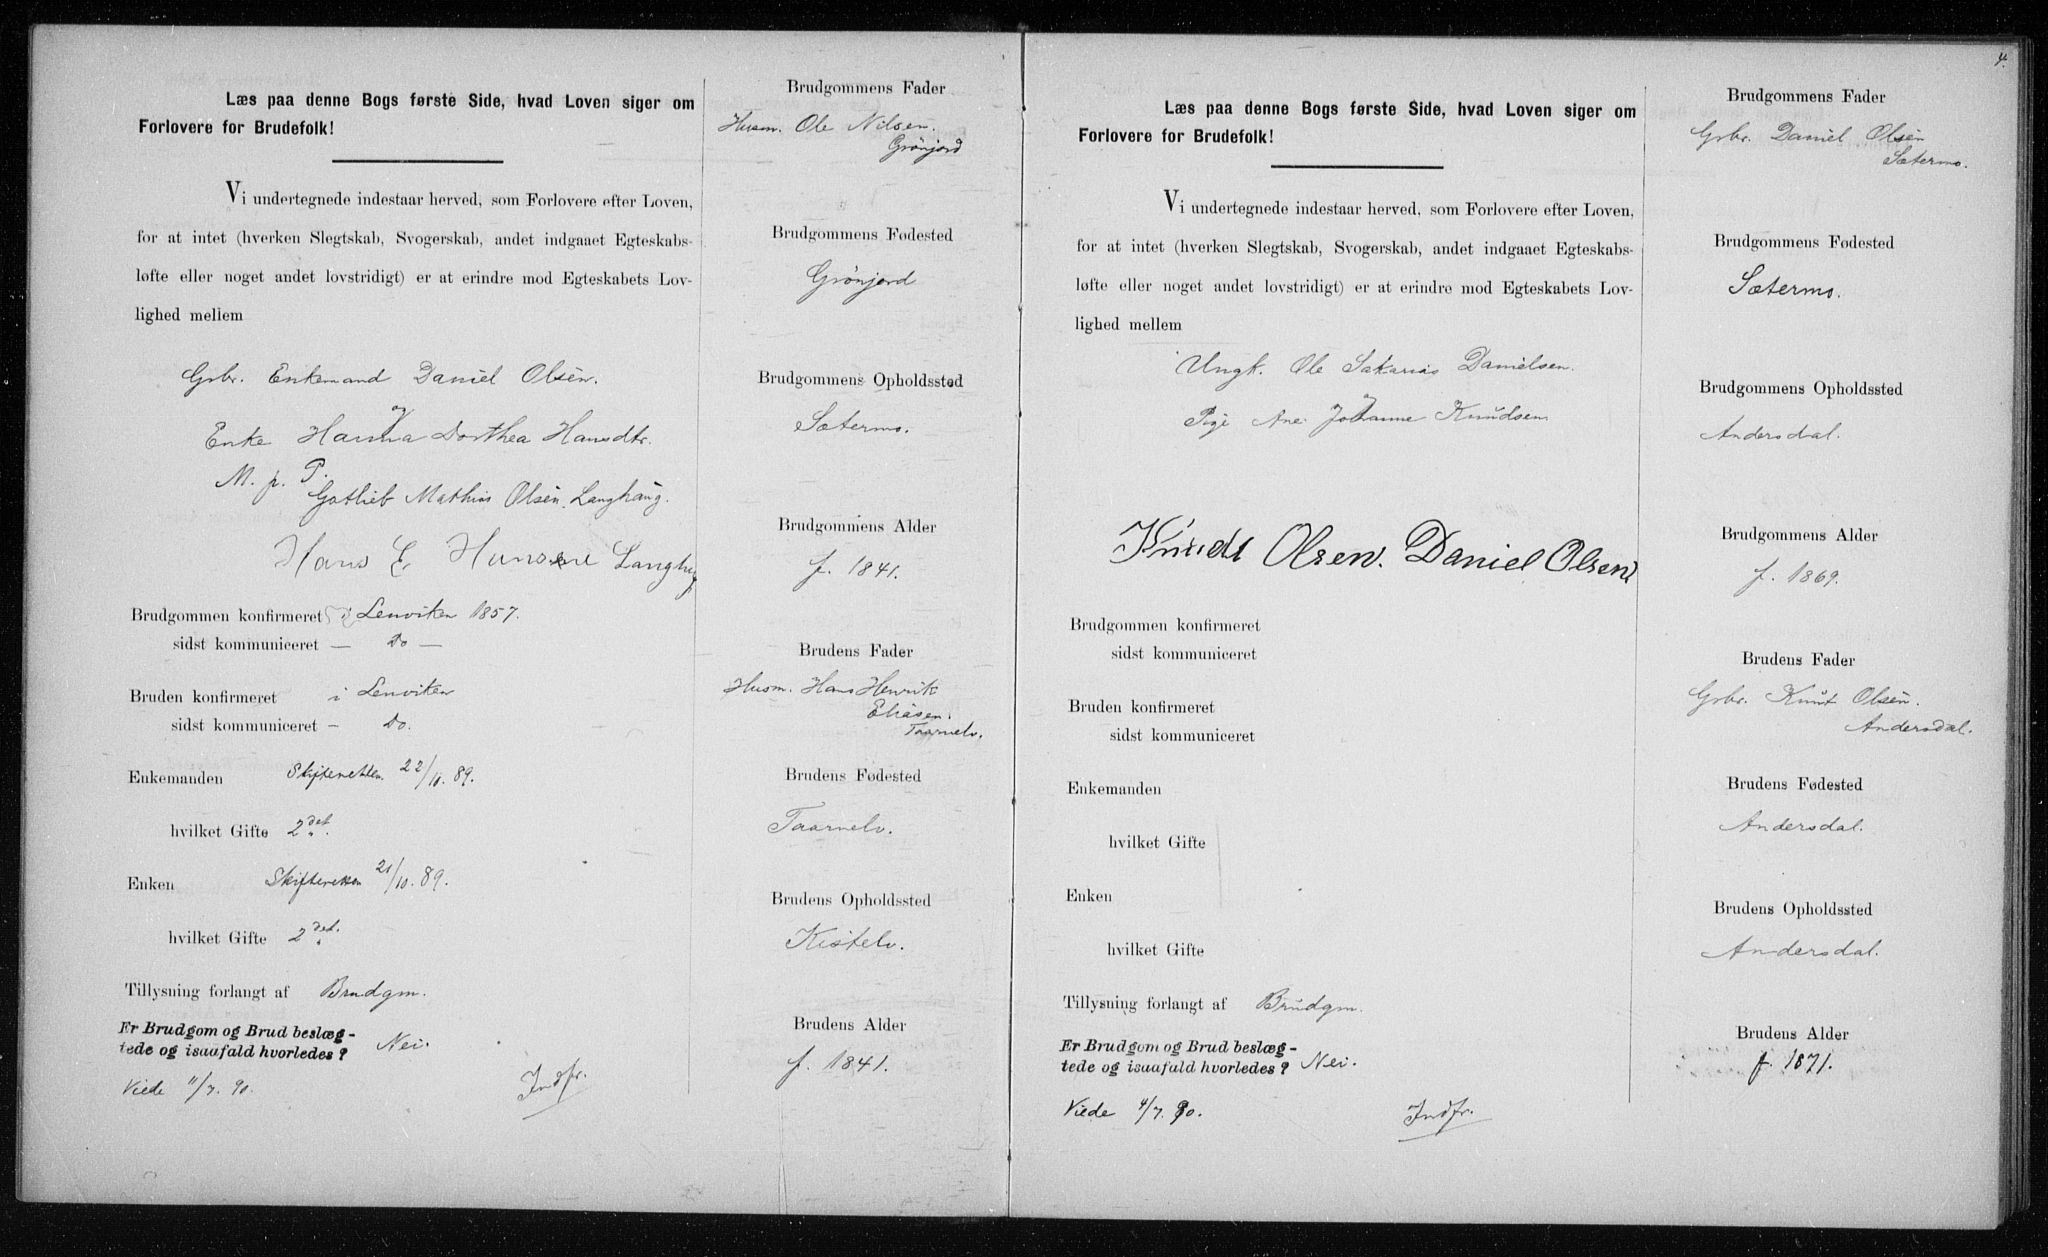 Læs paa denne Bogs første Side, hvad Loven siger om
Forlovere for Brudefolk!
Vi undertegnede indestaar herved, som Forlovere efter Loven,
for at intet (hverken Slegtskab, Svogerskab, andet indgaaet Egteskabs-
løfte eller noget andet lovstridigt) er at erindre mod Egteskabets Lov-
lighed mellem
Gbr. Enkemand Daniel Olsen.
og
Enke Hanna Dorthea Hansdtr.
M. p. P.
Gotlieb Mathias Olsen, Langhaug.
Hans E. Hansene Langhug
Brudgommen konfirmeret i Lenviken 1857.
sidst kommuniceret — Do —
Bruden konfirmeret i Lenviken
sidst kommuniceret — Do.
Enkemanden Skifteretten 22/10. 89.
hvilket Gifte 2det.
Enken Skifteretten 21/10. 89.
hvilket Gifte 2det.
Tillysning forlangt af Brudgm.
Er Brudgom og Brud beslæg-
tede og isaafald hvorledes? Nei.
Viede 11/7. 90. Indfr.
Brudgommens Fader
Husm. Ole Nilsen.
Grønjord
Brudgommens Fødested
Grønjord
Brudgommens Opholdssted
Sætermo.
Brudgommens Alder
f. 1841.
Brudens Fader
Husm. Hans Henrik
Eliasen.
Taarnelv.
Brudens Fødested
Taarnelv.
Brudens Opholdssted
Kistelv.
Brudens Alder
f. 1841.
4.
Læs paa denne Bogs første Side, hvad Loven siger om
Forlovere for Brudefolk!
Vi undertegnede indestaar herved, som Forlovere efter Loven,
for at intet (hverken Slegtskab, Svogerskab, andet indgaaet Egteskabs-
løfte eller noget andet lovstridigt) er at erindre mod Egteskabets Lov-
lighed mellem
Ungk. Ole Sakarias Danielsen.
og
Pige Ane Johanne Knudsen
Knudt Olsen. Daniel Olsen
Brudgommen konfirmeret
sidst kommuniceret
Bruden konfirmeret
sidst kommuniceret
Enkemanden
hvilket Gifte
Enken
hvilket Gifte
Tillysning forlangt af Brudgm.
Er Brudgom og Brud beslæg-
tede og isaafald hvorledes? Nei.
Viede 4/7. 90. Indfr.
Brudgommens Fader
Gbr. Daniel Olsen
Sætermo.
Brudgommens Fødested
Sætermo.
Brudgommens Opholdssted
Andersdal.
Brudgommens Alder
f. 1869.
Brudens Fader
Gbr. Knut Olsen.
Andersdal.
Brudens Fødested
Andersdal.
Brudens Opholdssted
Andersdal.
Brudens Alder
f. 1871.